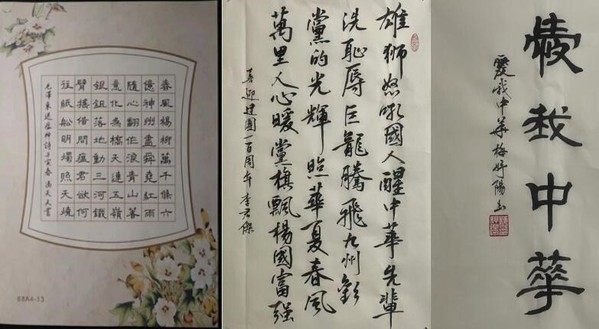 春風楊柳萬千條六
億神州盡舜堯紅雨
隨心翻作浪青山著
意化為橋天連五嶺
銀鋤落地動三河鐵
臂搖借問瘟君欲何
往紙船明燭照天燒
毛澤東送瘟神詩壬寅春
BBAA-13
雄獅怒吼國人醒中華先輩
洗恥辱巨龍騰飛九州歡
黨的光輝照華夏春風
萬里人心暖黨旗飄楊國富强
喜迎建團一百周年李君傑
愛我中華
愛我中華梅舒陽書